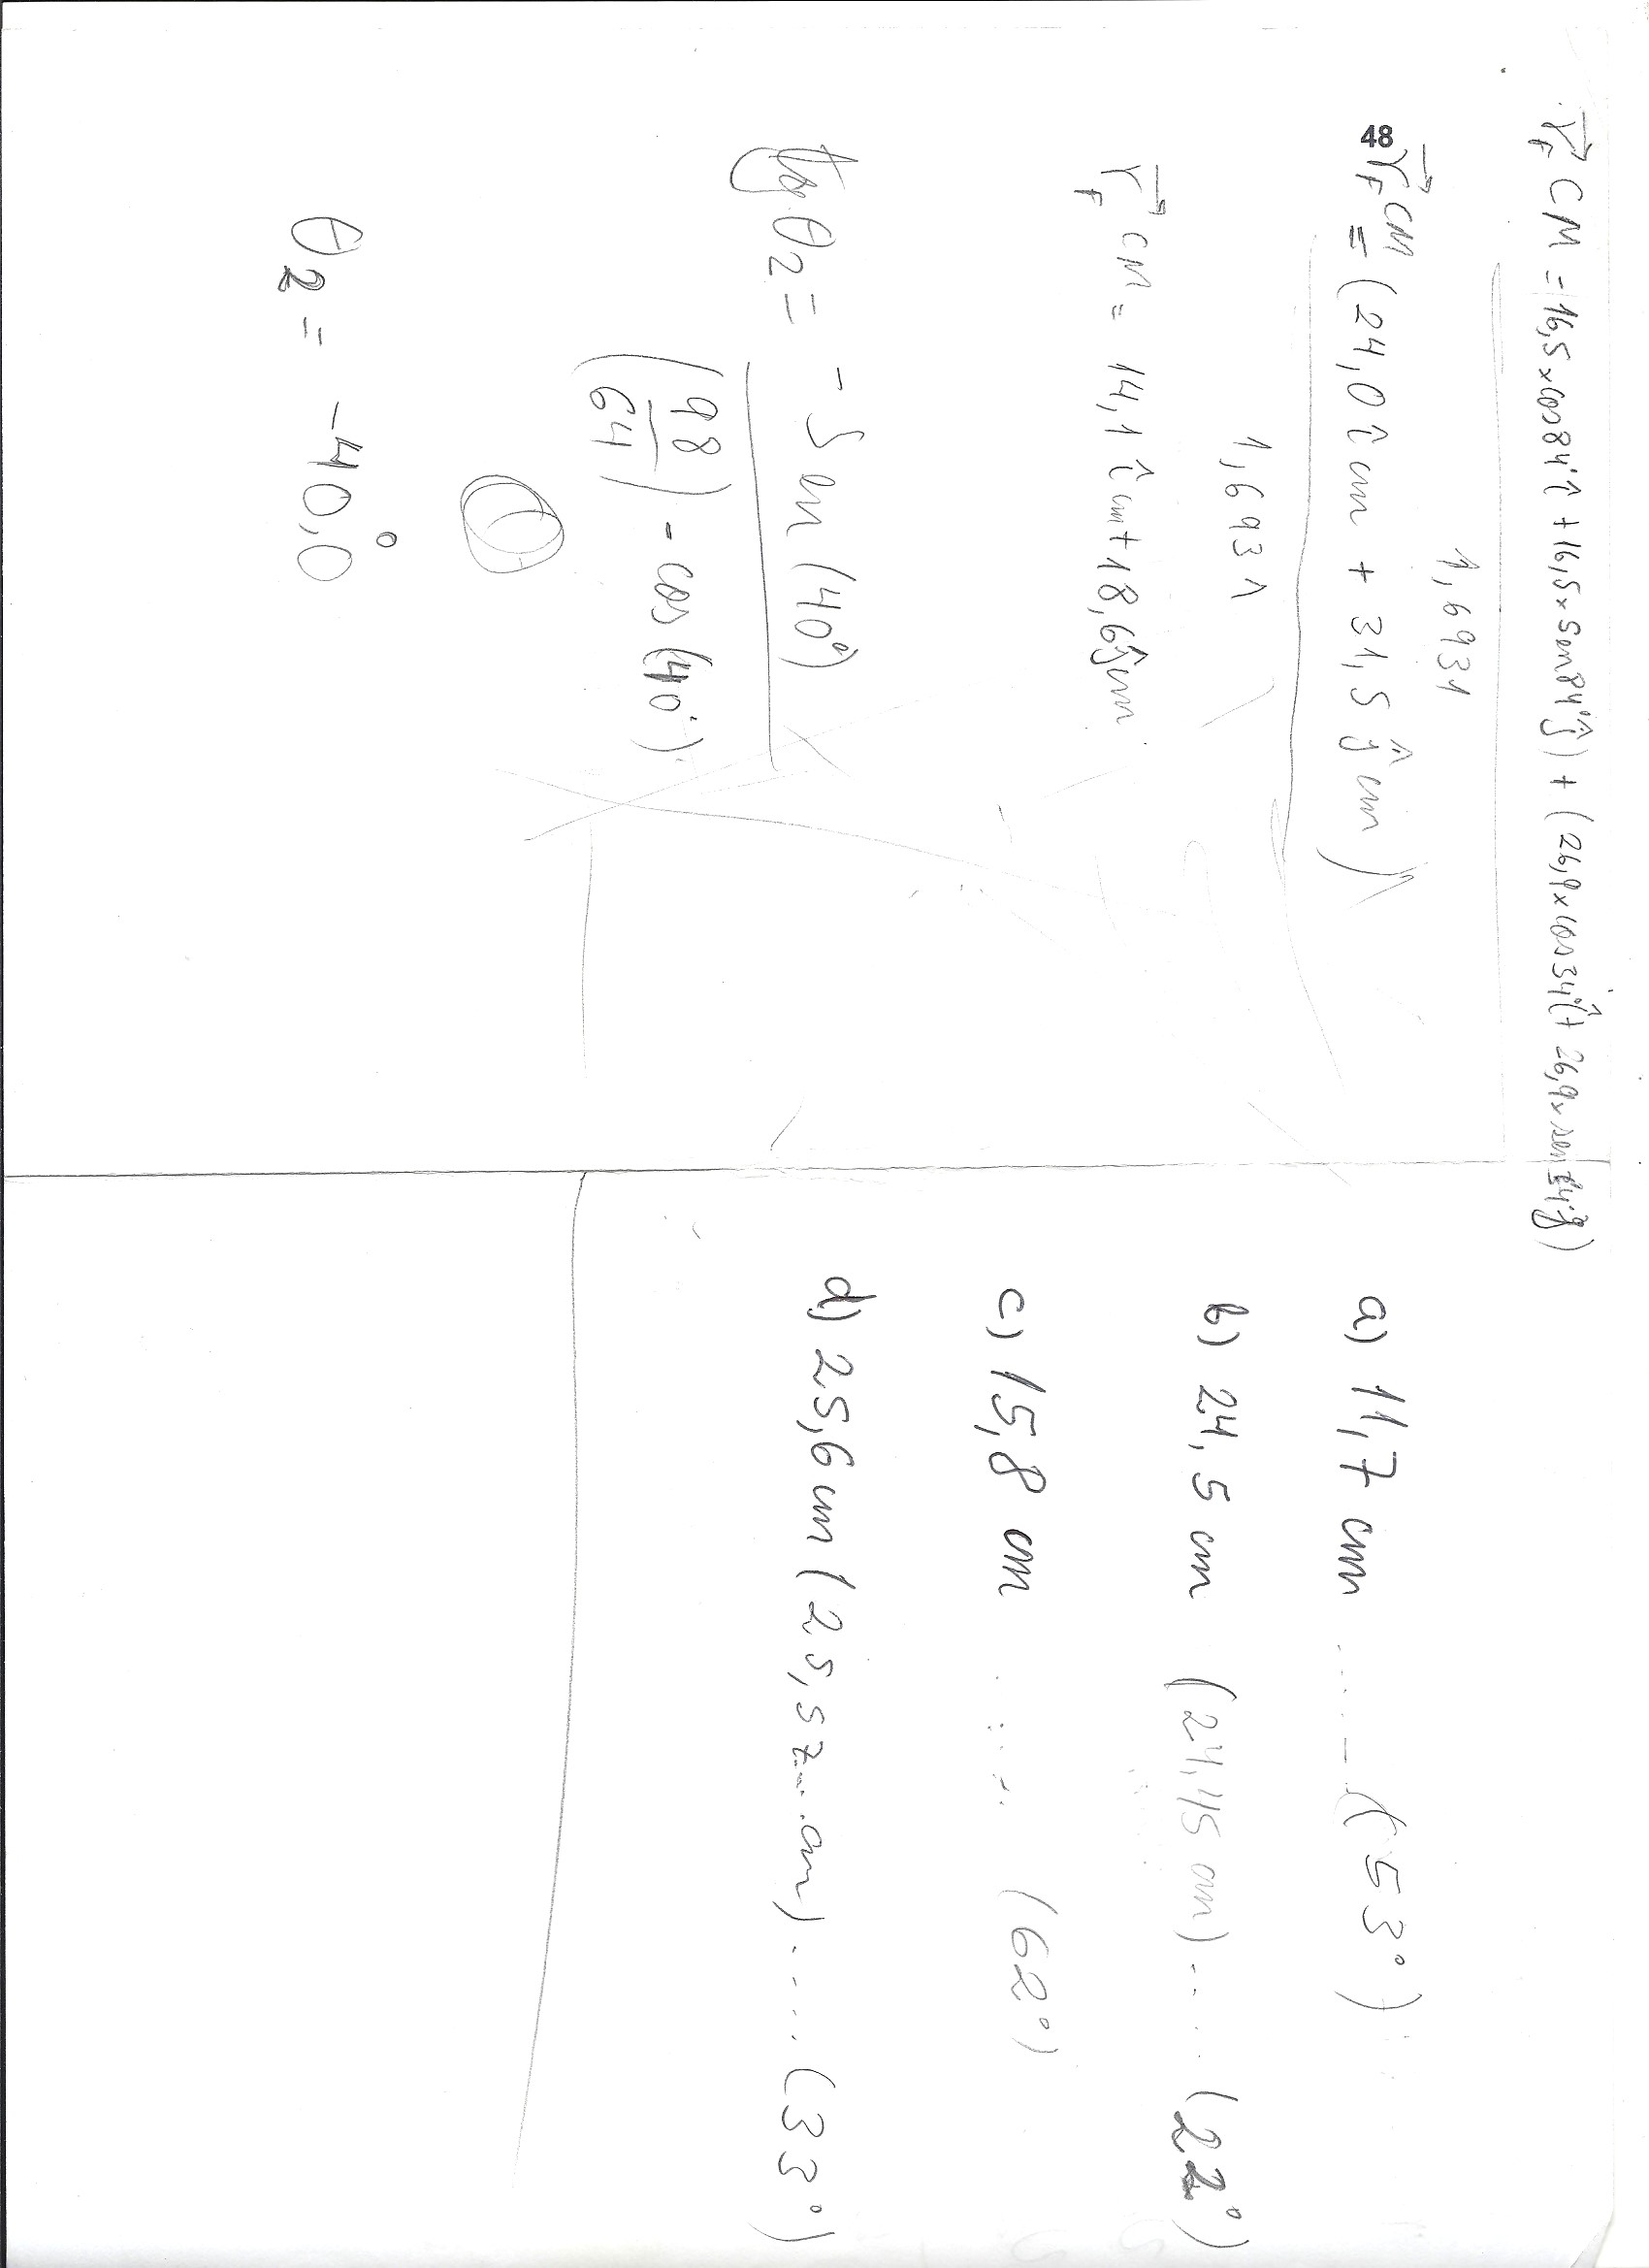 r⃗F CM = 16,5 x cos84° î + 16,5 x sen84° ĵ) + (26,9 x cos34° î + 26,9 x sen ĵ)
1,6931
48
r⃗F CM = (24,0 î cm + 31,5 ĵ cm)
1,693 1
r⃗F CM = 14,1 î cm + 18,6 ĵ cm
tg θ2 = - Sen (40°)
(98/64) - cos (40°)
θ2 = -40,0°
a) 11,7 cm ..... (53°)
b) 24,5 cm (24,45 cm) .... (22°)
c) 15,8 cm ..... (62°)
d) 25,6 cm (25,57... cm) ..... (33°)